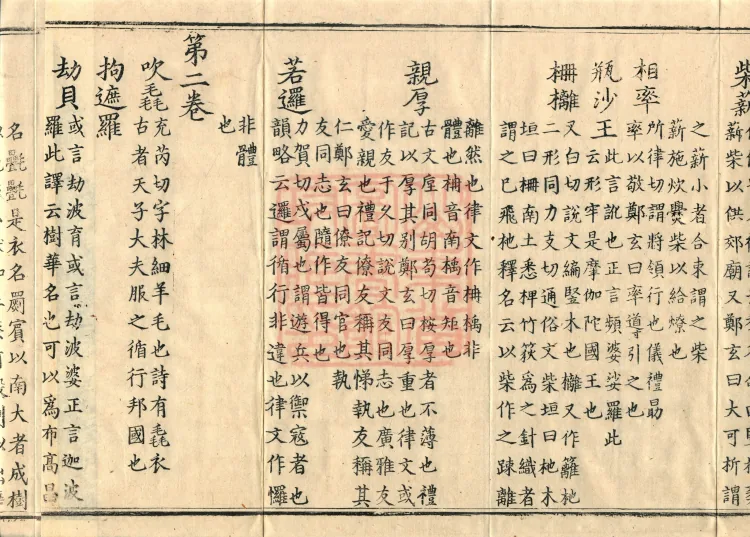 柴薪
薪柴以供郊廟又鄭玄曰大可折謂
之薪小者合束謂之柴
薪施炊爨柴以給燎也
相率
所律切謂將領行也儀禮勗
率以敬鄭玄曰率導引之也
瓶沙王
此言訛也正言頻婆娑羅此
云形牢是摩伽陀國王也
柵欄
又白切說文編竪木也欄又作籬杝
二形同力支切通俗文柴垣曰杝木
垣曰柵南土悉椑竹笯為之針織者
謂之巳飛杝釋名云以柴作之踈離
離然也律文作柟㮯非
體也柟音南㮯音矩也
親厚
古文垕同胡苟切桉厚者不薄也禮
記以厚其別鄭玄曰厚重也律文或
作友于久切說文友同志也廣雅友
愛親也禮記僚友稱其悌執友稱其
仁鄭玄曰僚友同官也執
友同志也隨作皆得也
若邏
力賀切戍屬也謂遊兵以禦寇者也
韻略云邏謂循行非違也律文作㦬
非體
也
第二卷
吹毳
充芮切字林細羊毛也詩有毳衣
古者天子大夫服之循行邦國也
拘遮羅
劫貝
或言劫波育或言劫波婆正言迦波
羅此譯云樹華名也可以為布高昌
名㲲㲲是衣名罽賓以南大者成樹